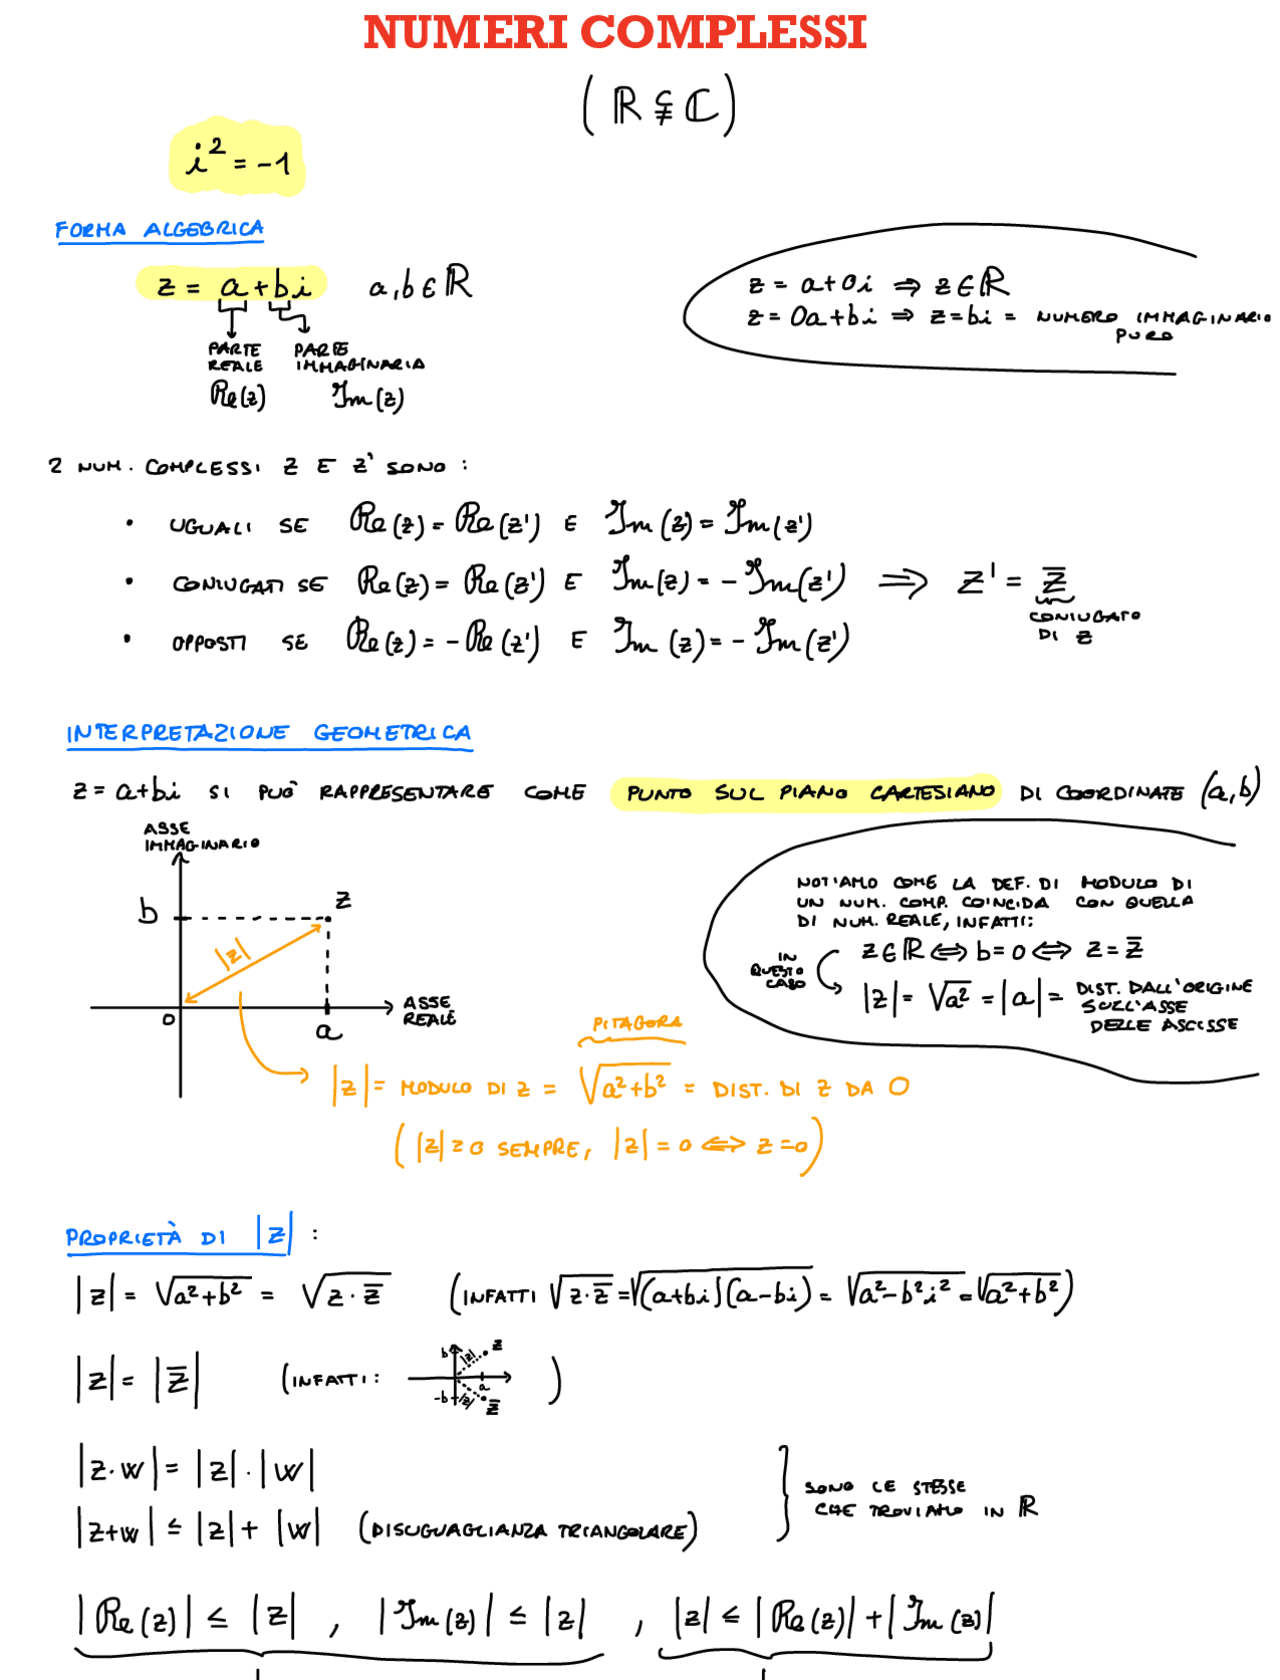 NUMERI COMPLESSI
(ℝ ⊊ ℂ)
i² = -1
FORMA ALGEBRICA
z = a+bi   a,b ∈ ℝ
PARTE REALE   PARTE IMMAGINARIA
Re(z)   Im(z)
z = a+0i ⇒ z ∈ ℝ
z = 0a+bi ⇒ z=bi = NUMERO IMMAGINARIO PURO
2 NUM. COMPLESSI Z E Z' SONO :
• UGUALI SE Re(z) = Re(z') E Im(z) = Im(z')
• CONIUGATI SE Re(z) = Re(z') E Im(z) = -Im(z') ⇒ Z' = z̅
CONIUGATO DI Z
• OPPOSTI SE Re(z) = -Re(z') E Im(z) = -Im(z')
INTERPRETAZIONE GEOMETRICA
z = a+bi SI PUÒ RAPPRESENTARE COME PUNTO SUL PIANO CARTESIANO DI COORDINATE (a,b)
ASSE IMMAGINARIO
b
z
|z|
0
a
ASSE REALE
NOTIAMO COME LA DEF. DI MODULO DI
UN NUM. COMP. COINCIDA CON QUELLA
DI NUM. REALE, INFATTI:
z ∈ ℝ ⇔ b=0 ⇔ z = z̅
IN QUESTO CASO
|z| = √a² = |a| = DIST. DALL'ORIGINE
SULL'ASSE
DELLE ASCISSE
PITAGORA
|z| = MODULO DI z = √(a²+b²) = DIST. DI z DA 0
(|z| ≥ 0 SEMPRE, |z| = 0 ⇔ z = 0)
PROPRIETÀ DI |z| :
|z| = √(a²+b²) = √(z·z̅)   (INFATTI √(z·z̅) = √((a+bi)(a-bi)) = √(a²-b²i²) = √(a²+b²))
|z| = |z̅|   (INFATTI: b |z| z a -b |z| z̅ )
|z·w| = |z|·|w|
|z+w| ≤ |z| + |w|   (DISUGUAGLIANZA TRIANGOLARE)
SONO LE STESSE
CHE TROVIAMO IN ℝ
|Re(z)| ≤ |z| , |Im(z)| ≤ |z| , |z| ≤ |Re(z)| + |Im(z)|